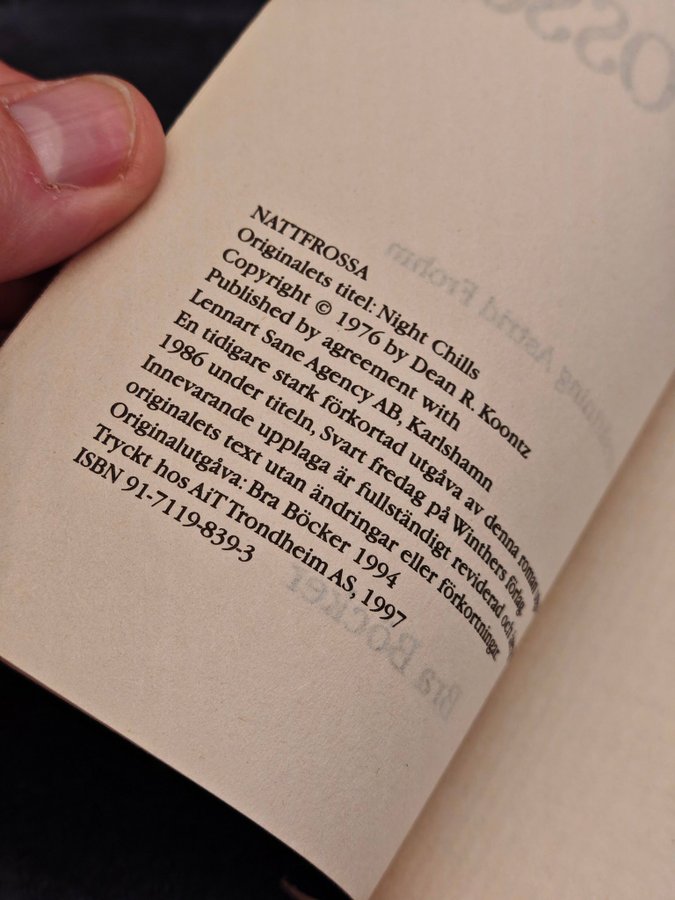 NATTFROSSA
Originalets titel: Night Chills
Copyright © 1976 by Dean R. Koontz
Published by agreement with
Lennart Sane Agency AB, Karlshamn
En tidigare stark förkortad utgåva av denna roman
1986 under titeln, Svart fredag på Winthers förlag.
Innevarande upplaga är fullständigt reviderad och
originalets text utan ändringar eller förkortningar.
Originalutgåva: Bra Böcker 1994
Tryckt hos AiT Trondheim AS, 1997
ISBN 91-7119-839-3
Astrid Frohm
Bra Böcker